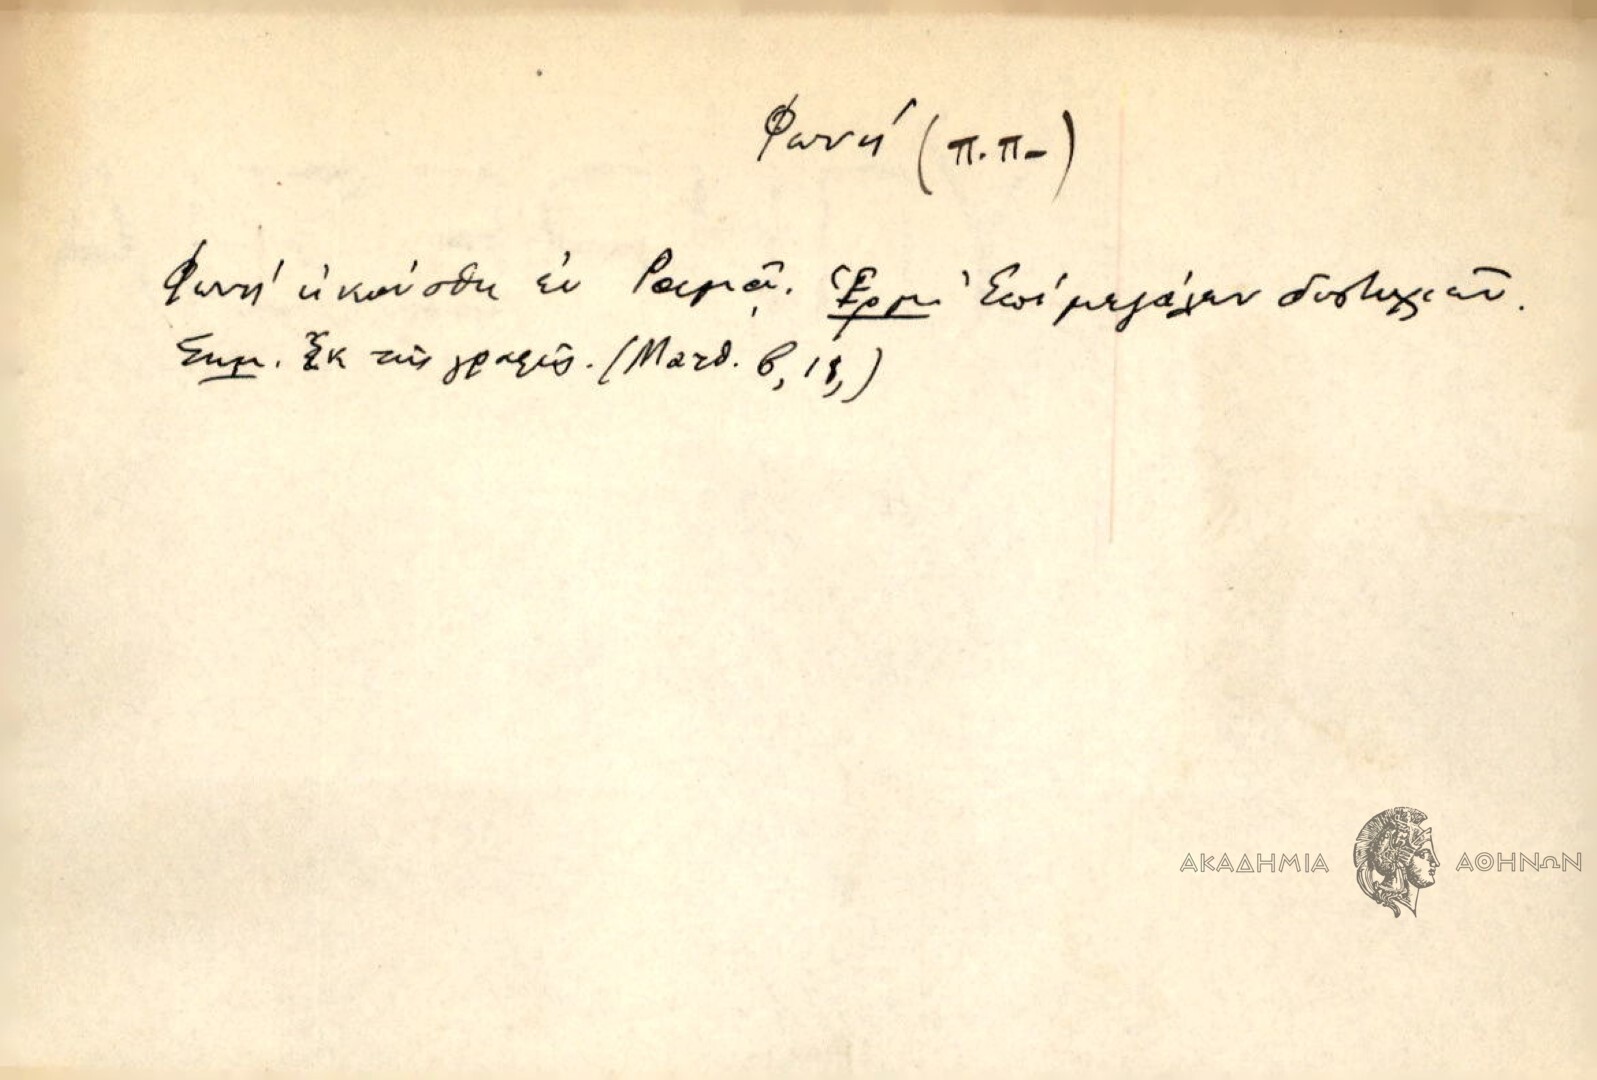 Φωνή (π.π-)
Φωνή ἠκούσθη ἐν Ραμᾶ. Ἑρμ. Ἐπί μεγάλων δυστυχιῶν.
Σημ. Ἐκ τῆς γραφῆς. (Ματθ. β, 18,)
ΑΚΑΔΗΜΙΑ ΑΘΗΝΩΝ